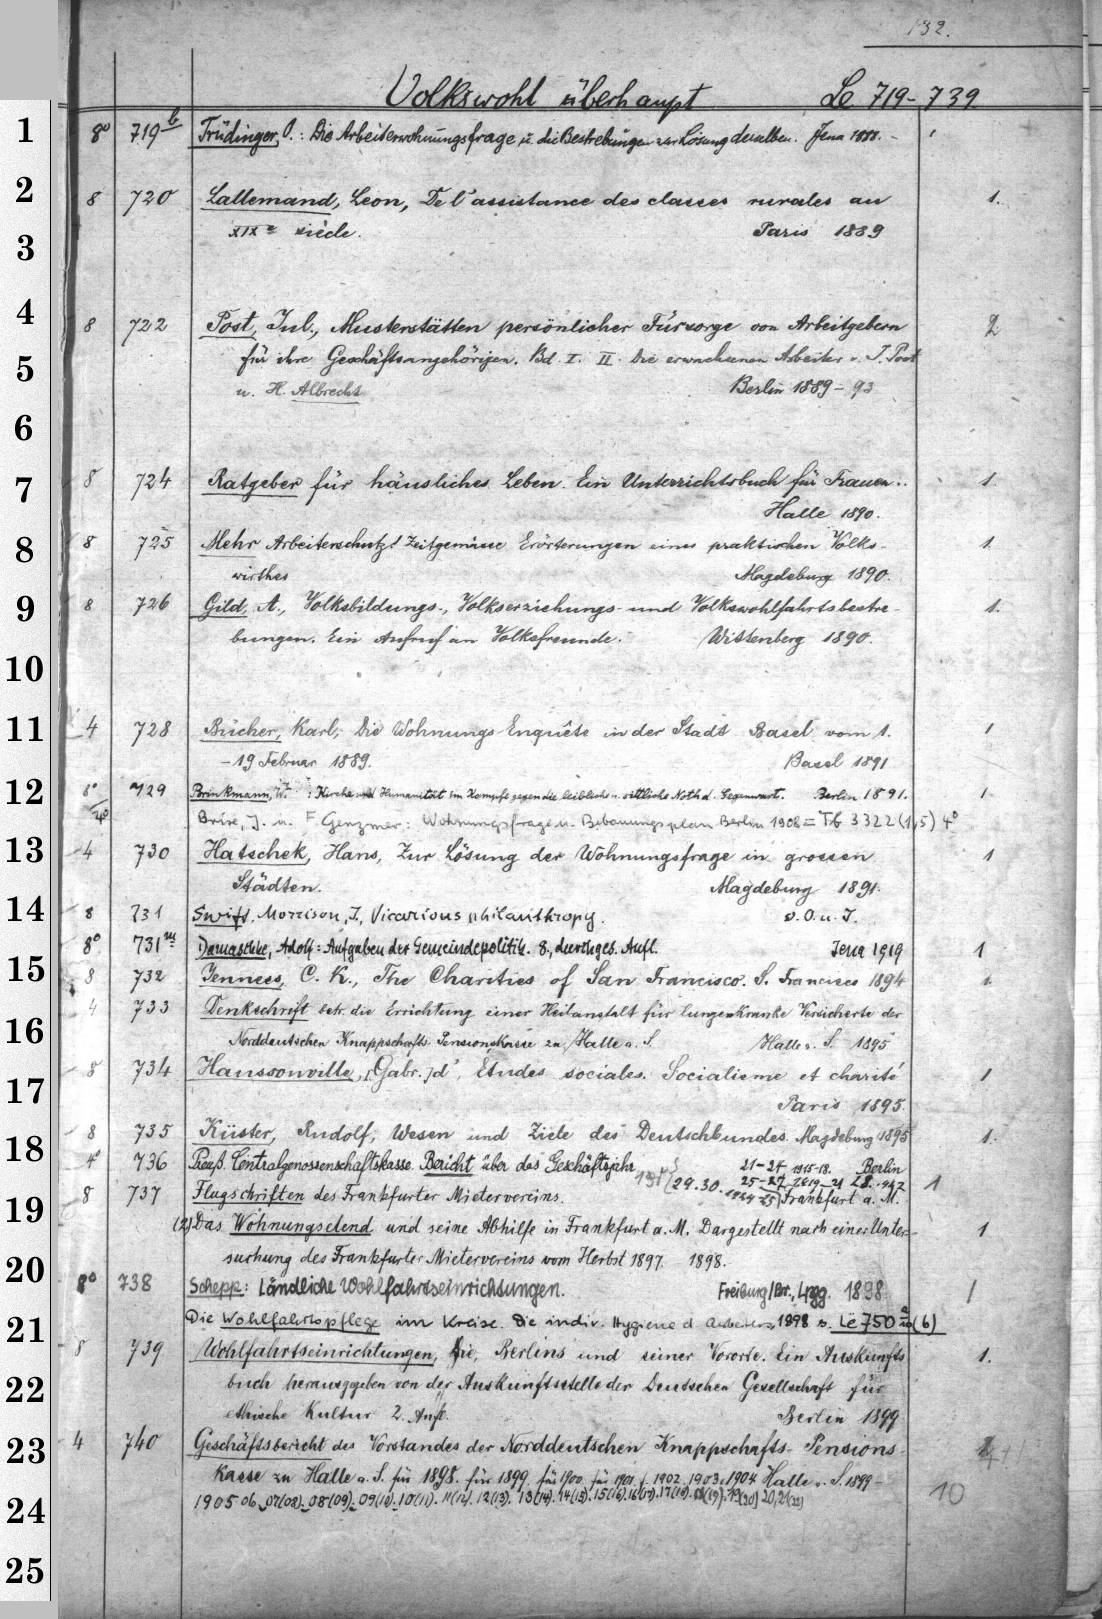 132.
Volkswohl überhaupt Le 719-739
1 8° 719b Trüdinger, O.: Die Arbeiterwohnungsfrage u. die Bestrebungen zur Lösung derselben. Jena 1888. - 1
2 8 720 Lallemand, Leon, De l'assistance des classes rurales au 1.
3 XIXe siècle. Paris 1889
4 8 722 Post, Jul., Musterstätten persönlicher Fürsorge von Arbeitgebern 2
5 für ihre Geschäftsangehörigen. Bd. I. II. Die erwachsenen Arbeiter v. J. Post
u. H. Albrecht Berlin 1889-93
6
7 8 724 Ratgeber für häusliches Leben. Ein Unterrichtsbuch für Frauen.. 1.
Halle 1890.
8 8 725 Mehr Arbeiterschutz! Zeitgemässe Erörterungen eines praktischen Volks- 1.
wirthes Magdeburg 1890.
9 8 726 Gild, A., Volksbildungs-, Volkserziehungs- und Volkswohlfahrtsbestre- 1.
bungen. Ein Aufruf an Volksfreunde. Wittenberg 1890.
10
11 4 728 Bücher, Karl, Die Wohnungs-Enquête in der Stadt Basel vom 1. 1
-19 Februar 1889. Basel 1891
12 8° 729 Brinkmann, W. : Kirche und Humanität im Kampfe gegen die leibliche u. sittliche Noth d. Gegenwart. Berlin 1891. 1
4° Brix, J. u. F. Genzmer: Wohnungsfrage u. Bebauungsplan Berlin 1908 = Tb 3322 (1,5) 4°
13 4 730 Hatschek, Hans, Zur Lösung der Wohnungsfrage in grossen 1
Städten. Magdeburg 1891.
14 8 731 Swift, Morrison, I, Vicarious philanthropy. o. O. u. J.
8° 731m Damaschke, Adolf: Aufgaben der Gemeindepolitik. 8., durchges. Aufl. Jena 1919 1
15 8 732 Jenness, C. K., The Charities of San Francisco. S. Francisco 1894 1.
4 733 Denkschrift betr. die Errichtung einer Heilanstalt für lungenkranke Versicherte der
16 Norddeutschen Knappschafts-Pensionskasse zu Halle a. S. Halle a. S. 1895
8 734 Haussonville, [Gabr.] d', Études sociales. Socialisme et charité 1
17 Paris 1895.
18 8 735 Küster, Rudolf, Wesen und Ziele des Deutschbundes. Magdeburg 1895 1.
4° 736 Preuß. Centralgenossenschaftskasse. Bericht über das Geschäftsjahr 21-24 1915-18. Berlin
29.30. 25-27 1919-21
8 737 Flugschriften des Frankfurter Mietervereins. 1924-25) Frankfurt a. M. 1
19 (2) Das Wohnungselend und seine Abhilfe in Frankfurt a. M. Dargestellt nach einer Unter- 1
suchung des Frankfurter Mietervereins vom Herbst 1897. 1898.
20 8° 738 Schepp: Ländliche Wohlfahrtseinrichtungen. Freiburg/Br., Lpzg. 1898 1
21 Die Wohlfahrtspflege im Kreise. Die indiv. Hygiene d Arbeiters, 1898 s. Le 750 (6)
8 739 Wohlfahrtseinrichtungen, Die, Berlins und seiner Vororte. Ein Auskunfts 1.
22 buch herausgegeben von der Auskunftsstelle der Deutschen Gesellschaft für
ethische Kultur 2. Aufl. Berlin 1899
23 4 740 Geschäftsbericht des Vorstandes der Norddeutschen Knappschafts-Pensions-
Kasse zu Halle a. S. für 1898. für 1899. für 1900. für 1901. f. 1902. 1903. 1904 Halle a. S. 1899-
24 1905 06. 07(08). 08(09). 09(10). 10(11). 11(12). 12(13). 13(14). 14(15). 15(16). 16(17). 17(18). 18(19). 19(20) 20,21(22) 10
25